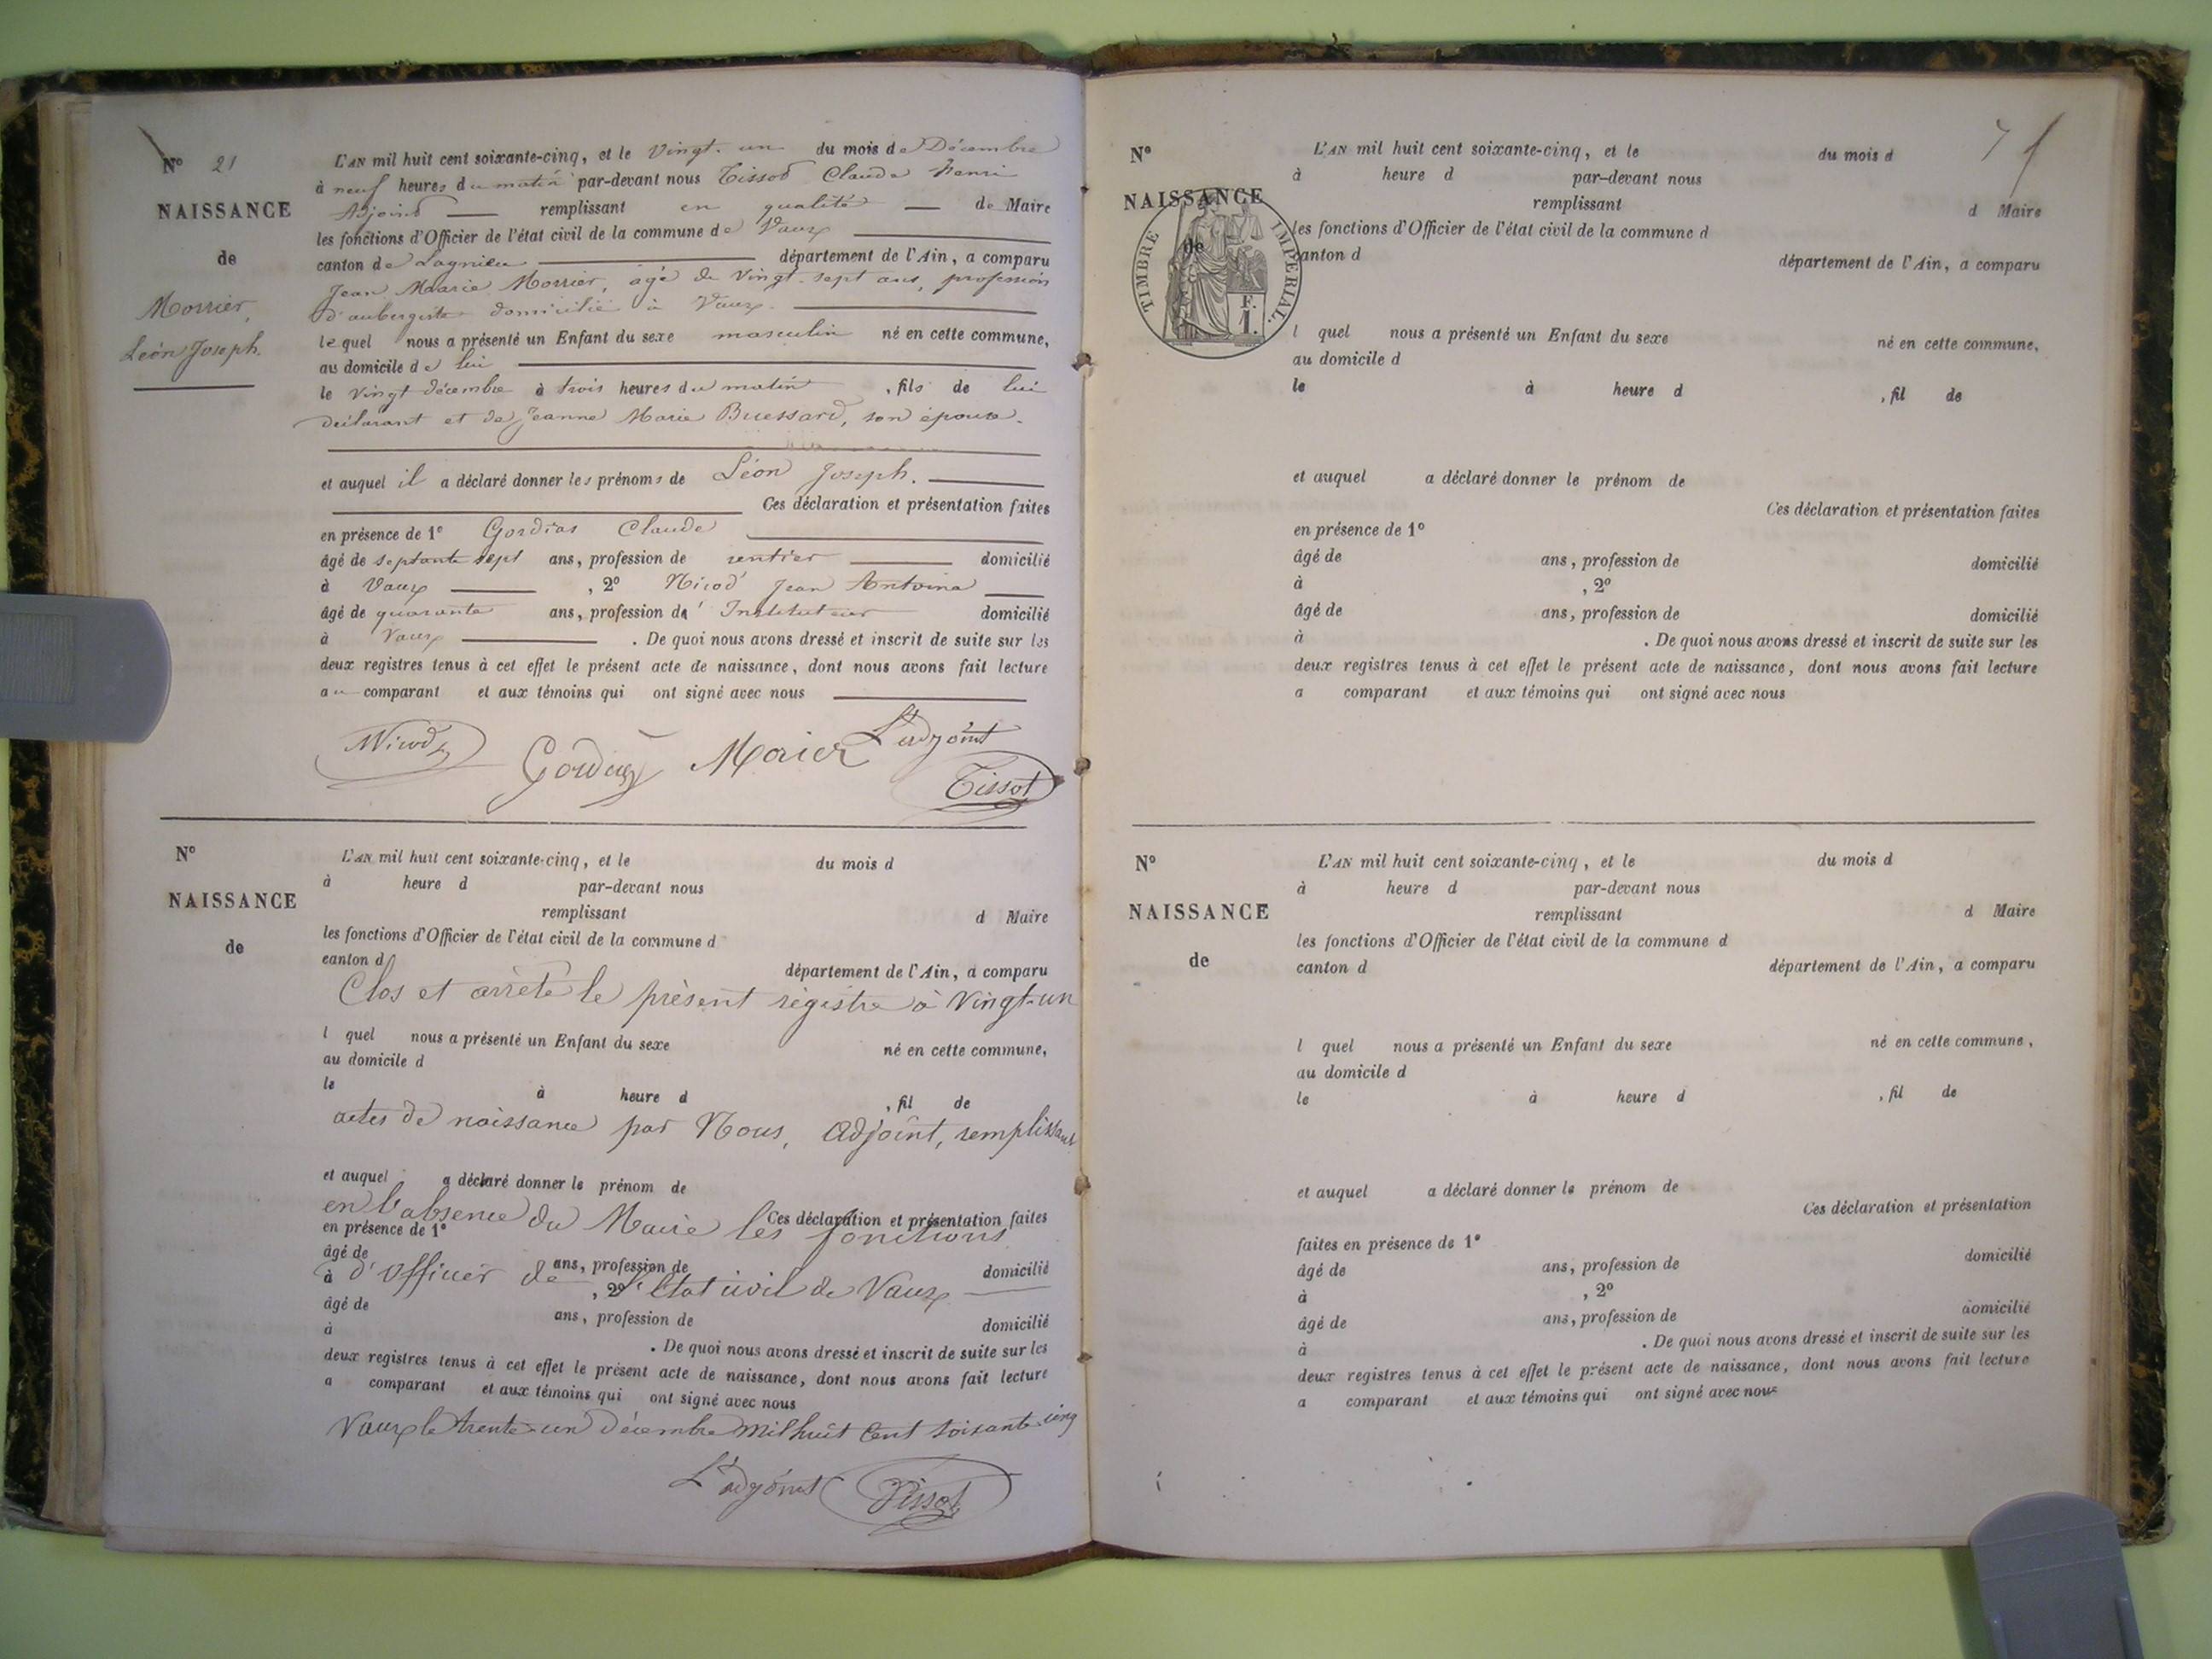 N° 21
NAISSANCE
de
Morrier,
Léon Joseph.
L'AN mil huit cent soixante-cinq, et le Vingt-un du mois de Décembre
à neuf heures du matin par-devant nous Tissot Claude Henri
Adjoint remplissant en qualité de Maire
les fonctions d'Officier de l'état civil de la commune de Vaux
canton de Lagnieu département de l'Ain, a comparu
Jean Marie Morrier, âgé de Vingt-sept ans, profession
d'aubergiste domicilié à Vaux.
lequel nous a présenté un Enfant du sexe masculin né en cette commune,
au domicile de lui
le Vingt décembre à trois heures du matin, fils de lui
déclarant et de Jeanne Marie Buessard, son épouse.
et auquel il a déclaré donner les prénoms de Léon Joseph.
Ces déclaration et présentation faites
en présence de 1° Gordias Claude
âgé de septante sept ans, profession de rentier domicilié
à Vaux, 2° Nicod Jean Antoine
âgé de quarante ans, profession d' Instituteur domicilié
à Vaux. De quoi nous avons dressé et inscrit de suite sur les
deux registres tenus à cet effet le présent acte de naissance, dont nous avons fait lecture
au comparant et aux témoins qui ont signé avec nous
Nicod Morier L'adjoint
Tissot
N°
NAISSANCE
de
L'AN mil huit cent soixante-cinq, et le du mois d
à heure d par-devant nous
remplissant d Maire
les fonctions d'Officier de l'état civil de la commune d
canton d département de l'Ain, a comparu
Clos et arrêté le présent régistre à Vingt-un
l quel nous a présenté un Enfant du sexe né en cette commune,
au domicile d
le à heure d , fil de
actes de naissance par Nous, Adjoint, remplissant
et auquel a déclaré donner le prénom de
Ces déclaration et présentation faites
en l'absence du Maire les fonctions
en présence de 1°
âgé de ans, profession de domicilié
d'officier de l'état civil de Vaux
à , 2°
âgé de ans, profession de domicilié
à . De quoi nous avons dressé et inscrit de suite sur les
deux registres tenus à cet effet le présent acte de naissance, dont nous avons fait lecture
a comparant et aux témoins qui ont signé avec nous
Vaux le trente-un Décembre mil huit cent soixante cinq
L'adjoint Tissot
N°
NAISSANCE
de
TIMBRE IMPERIAL.
F.
1.
L'AN mil huit cent soixante-cinq, et le du mois d
à heure d par-devant nous
remplissant d Maire
les fonctions d'Officier de l'état civil de la commune d
canton d département de l'Ain, a comparu
l quel nous a présenté un Enfant du sexe né en cette commune,
au domicile d
le à heure d , fil de
et auquel a déclaré donner le prénom de
Ces déclaration et présentation faites
en présence de 1°
âgé de ans, profession de domicilié
à , 2°
âgé de ans, profession de domicilié
à . De quoi nous avons dressé et inscrit de suite sur les
deux registres tenus à cet effet le présent acte de naissance, dont nous avons fait lecture
a comparant et aux témoins qui ont signé avec nous
N°
NAISSANCE
de
L'AN mil huit cent soixante-cinq, et le du mois d
à heure d par-devant nous
remplissant d Maire
les fonctions d'Officier de l'état civil de la commune d
canton d département de l'Ain, a comparu
l quel nous a présenté un Enfant du sexe né en cette commune,
au domicile d
le à heure d , fil de
et auquel a déclaré donner le prénom de
Ces déclaration et présentation
faites en présence de 1° domicilié
âgé de ans, profession de
à , 2°
âgé de ans, profession de domicilié
à . De quoi nous avons dressé et inscrit de suite sur les
deux registres tenus à cet effet le présent acte de naissance, dont nous avons fait lecture
a comparant et aux témoins qui ont signé avec nous